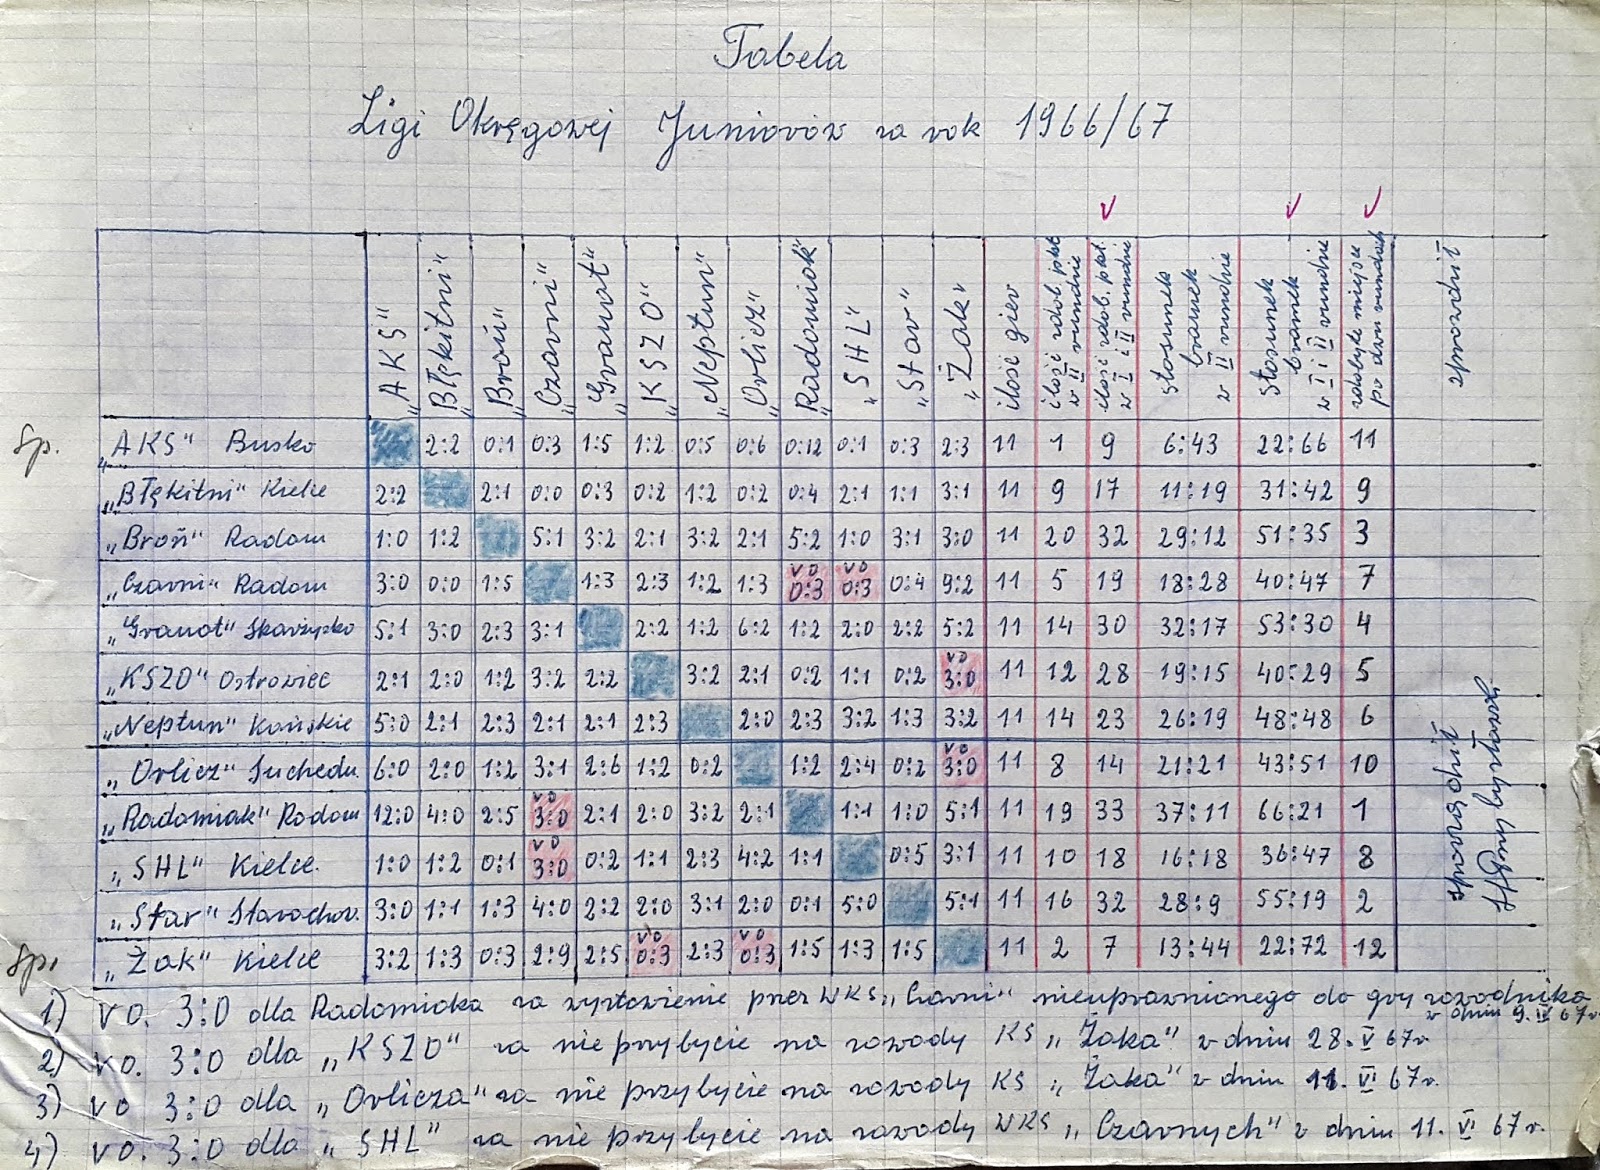 Tabela
Ligi Okręgowej Juniorów za rok 1966/67
„AKS" „Błękitni" „Broń" „Czarni" „Granat" „KSZO" „Neptun" „Orlicz" „Radomiak" „SHL" „Star" „Żak" ilość gier ilość zdob. pkt w II rundzie ilość zdob. pkt. w I i II rundzie stosunek bramek w II rundzie stosunek bramek w I i II rundzie zdobyte miejsce po dwu rundach sprawdził
Sp. „AKS" Busko 2:2 0:1 0:3 1:5 1:2 0:5 0:6 0:12 0:1 0:3 2:3 11 1 9 6:43 22:66 11
„Błękitni" Kielce 2:2 2:1 0:0 0:3 0:2 1:2 0:2 0:4 2:1 1:1 3:1 11 9 17 11:19 31:42 9
„Broń" Radom 1:0 1:2 5:1 3:2 2:1 3:2 2:1 5:2 1:0 3:1 3:0 11 20 32 29:12 51:35 3
„Czarni" Radom 3:0 0:0 1:5 1:3 2:3 1:2 1:3 vo 0:3 vo 0:3 0:4 9:2 11 5 19 18:28 40:47 7
„Granat" Skarżysko 5:1 3:0 2:3 3:1 2:2 1:2 6:2 1:2 2:0 2:2 5:2 11 14 30 32:17 53:30 4
„KSZO" Ostrowiec 2:1 2:0 1:2 3:2 2:2 3:2 2:1 0:2 1:1 0:2 vo 3:0 11 12 28 19:15 40:29 5
„Neptun" Końskie 5:0 2:1 2:3 2:1 2:1 2:3 2:0 2:3 3:2 1:3 3:2 11 14 23 26:19 48:48 6
„Orlicz" Suchedn. 6:0 2:0 1:2 3:1 2:6 1:2 0:2 1:2 2:4 0:2 vo 3:0 11 8 14 21:21 43:51 10
„Radomiak" Radom 12:0 4:0 2:5 vo 3:0 2:1 2:0 3:2 2:1 1:1 1:0 5:1 11 19 33 37:11 66:21 1
„SHL" Kielce. 1:0 1:2 0:1 vo 3:0 0:2 1:1 2:3 4:2 1:1 0:5 3:1 11 10 18 16:18 36:47 8
„Star" Starachow. 3:0 1:1 1:3 4:0 2:2 2:0 3:1 2:0 0:1 5:0 5:1 11 16 32 28:9 55:19 2
Sp. „Żak" Kielce 3:2 1:3 0:3 2:9 2:5 vo 0:3 2:3 vo 0:3 1:5 1:3 1:5 11 2 7 13:44 22:72 12
sprawdził
1) vo. 3:0 dla Radomiaka za wystawienie przez WKS „Czarni" nieuprawnionego do gry zawodnika
w dniu 9. IV 67r
2) vo. 3:0 dla „KSZO" za nie przybycie na zawody KS „Żaka" w dniu 28. V 67r.
3) vo 3:0 dla „Orlicza" za nie przybycie na zawody KS „Żaka" w dniu 11. VI 67r.
4) vo. 3:0 dla „SHL" za nie przybycie na zawody WKS „Czarnych" w dniu 11. VI 67r.